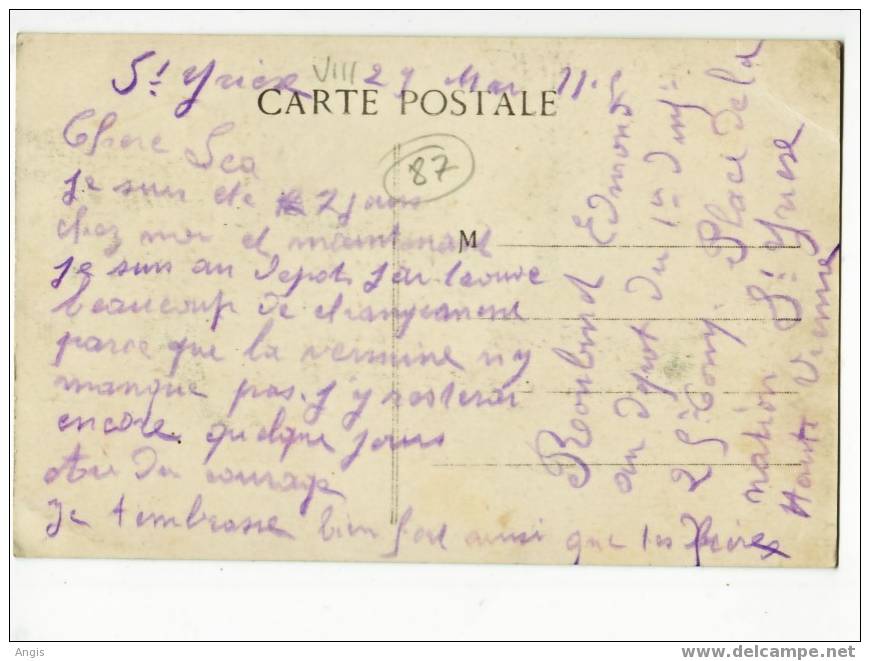 St Yriex VIII 27 Mai 11.5
CARTE POSTALE
87
Chere Lea
M
Je suis ete 7 jours
chez moi et maintenant
Je suis au depot j ai trouve
beaucoup de changement
parce que la vermine n y
manque pas. J'y resterai
encore quelque jours
du courage
Je t embrasse bien fort ainsi que tes frères
Edmond
au depot du 1er d inf
25e Comp. Place de la
nation St Yriex
Haute Vienne
Angis
www.delcampe.net